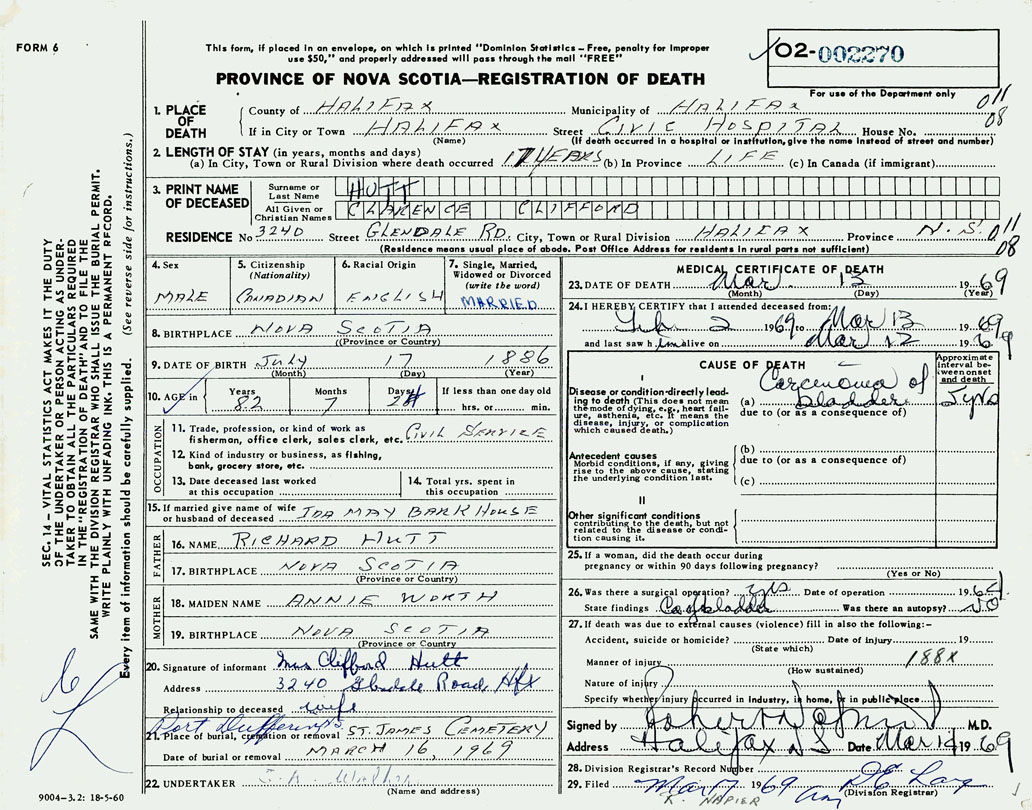 FORM 6
This form, if placed in an envelope, on which is printed "Dominion Statistics – Free, penalty for improper
use $50," and properly addressed will pass through the mail "FREE"
PROVINCE OF NOVA SCOTIA—REGISTRATION OF DEATH
02-002270
For use of the Department only
SEC. 14 – VITAL STATISTICS ACT MAKES IT THE DUTY
OF THE UNDERTAKER OR PERSON ACTING AS UNDER-
TAKER TO OBTAIN ALL THE PARTICULARS REQUIRED
IN THE "REGISTRATION OF DEATH" AND TO FILE THE
SAME WITH THE DIVISION REGISTRAR WHO SHALL ISSUE THE BURIAL PERMIT.
WRITE PLAINLY WITH UNFADING INK. THIS IS A PERMANENT RECORD.
Every item of information should be carefully supplied. (See reverse side for instructions.)
1. PLACE OF DEATH
County of HALIFAX Municipality of HALIFAX 011
If in City or Town HALIFAX Street CIVIC HOSPITAL House No. 08
(Name) (If death occurred in a hospital or institution, give the name instead of street and number)
2. LENGTH OF STAY (in years, months and days)
(a) In City, Town or Rural Division where death occurred 17 YEARS (b) In Province LIFE (c) In Canada (if immigrant)
3. PRINT NAME OF DECEASED
Surname or Last Name HUTT
All Given or Christian Names CLARENCE CLIFFORD
RESIDENCE No 3240 Street GLENDALE RD. City, Town or Rural Division HALIFAX Province N.S. 011
(Residence means usual place of abode. Post Office Address for residents in rural parts not sufficient) 08
4. Sex MALE
5. Citizenship (Nationality) CANADIAN
6. Racial Origin ENGLISH
7. Single, Married, Widowed or Divorced (write the word) MARRIED
8. BIRTHPLACE NOVA SCOTIA
(Province or Country)
9. DATE OF BIRTH July 17 1886
(Month) (Day) (Year)
10. AGE in Years 82 Months 7 Days If less than one day old hrs. or min.
OCCUPATION
11. Trade, profession, or kind of work as
fisherman, office clerk, sales clerk, etc. CIVIL SERVICE
12. Kind of industry or business, as fishing,
bank, grocery store, etc.
13. Date deceased last worked
at this occupation
14. Total yrs. spent in
this occupation
15. If married give name of wife
or husband of deceased IDA MAY BARKHOUSE
FATHER
16. NAME RICHARD HUTT
17. BIRTHPLACE NOVA SCOTIA
(Province or Country)
MOTHER
18. MAIDEN NAME ANNIE WORTH
19. BIRTHPLACE NOVA SCOTIA
(Province or Country)
20. Signature of informant Mrs Clifford Hutt
Address 3240 Glendale Road Hfx
Relationship to deceased wife
Port Dufferin
21. Place of burial, cremation or removal ST. JAMES CEMETERY
Date of burial or removal MARCH 16, 1969
22. UNDERTAKER
(Name and address)
9004–3.2: 18-5-60
MEDICAL CERTIFICATE OF DEATH
23. DATE OF DEATH Mar 13 1969
(Month) (Day) (Year)
24. I HEREBY CERTIFY that I attended deceased from:
Feb 2 1969 to Mar 13 1969
and last saw him alive on Mar 12 1969
CAUSE OF DEATH
Approximate interval between onset and death
I
Disease or condition directly lead-
ing to death (This does not mean
the mode of dying, e.g., heart fail-
ure, asthenia, etc. It means the
disease, injury, or complication
which caused death.)
(a) Carcenoma of bladder 5 yrs
due to (or as a consequence of)
Antecedent causes
Morbid conditions, if any, giving
rise to the above cause, stating
the underlying condition last.
(b)
due to (or as a consequence of)
(c)
II
Other significant conditions
contributing to the death, but not
related to the disease or condi-
tion causing it.
25. If a woman, did the death occur during
pregnancy or within 90 days following pregnancy?
(Yes or No)
26. Was there a surgical operation? yes Date of operation 1964
State findings Ca of bladder Was there an autopsy? No
27. If death was due to external causes (violence) fill in also the following:-
Accident, suicide or homicide? Date of injury 19
(State which)
Manner of injury 188X
(How sustained)
Nature of injury
Specify whether injury occurred in industry, in home, or in public place.
Signed by M.D.
Address Halifax NS Date Mar 14 1969
28. Division Registrar's Record Number
29. Filed Mar 17 1969
(Division Registrar)
R. NAPIER